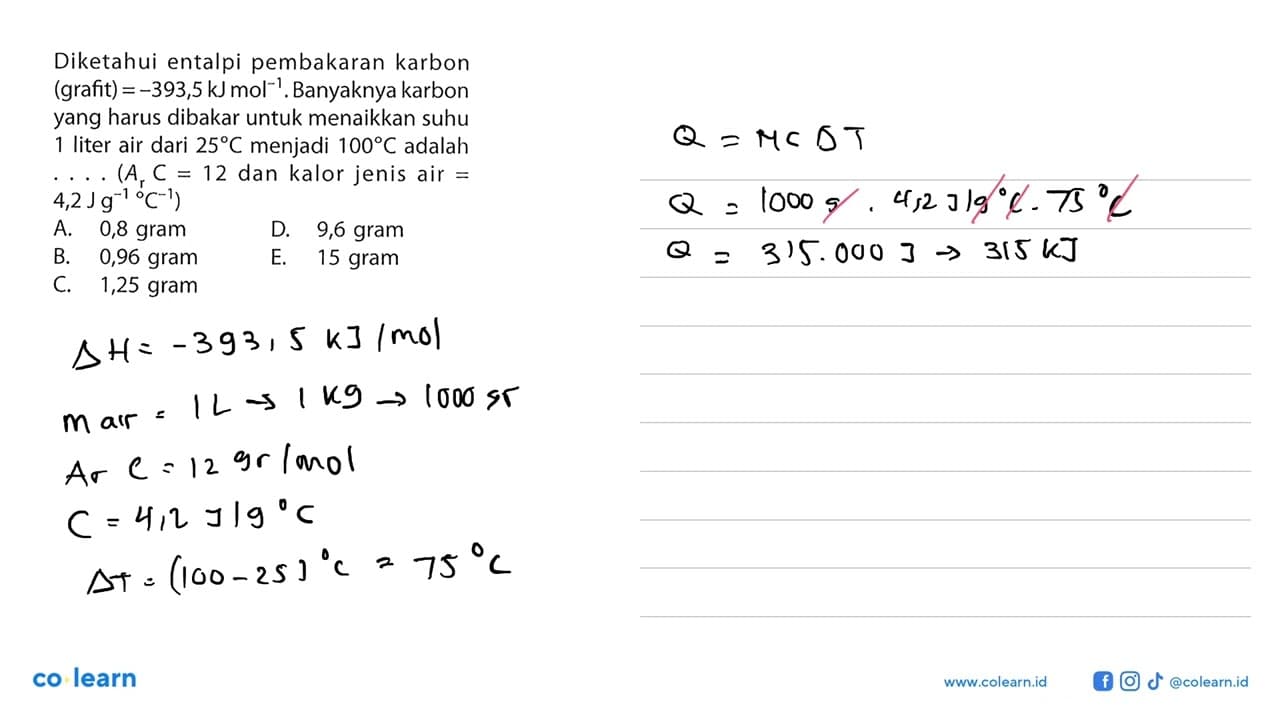 Diketahui entalpi pembakaran karbon
(grafit) = –393,5 kJ mol⁻¹. Banyaknya karbon
yang harus dibakar untuk menaikkan suhu
1 liter air dari 25°C menjadi 100°C adalah
. . . . (Aᵣ C = 12 dan kalor jenis air =
4,2 J g⁻¹ °C⁻¹)
A. 0,8 gram D. 9,6 gram
B. 0,96 gram E. 15 gram
C. 1,25 gram
ΔH = -393,5 kJ/mol
m air = 1L → 1 kg → 1000 gr
Ar C = 12 gr/mol
C = 4,2 J/g°C
ΔT = (100-25)°C = 75°C
Q = MCΔT
Q = 1000 g . 4,2 J/g°C . 75°C
Q = 315.000 J → 315 kJ
co learn
www.colearn.id
@colearn.id